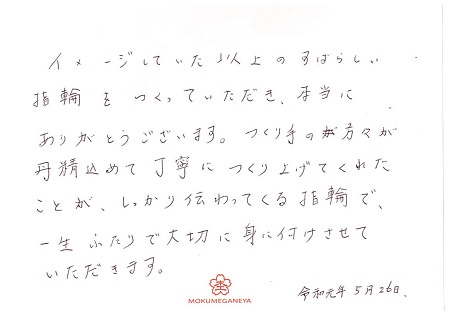 イメージしていた以上のすばらしい
指輪をつくっていただき、本当に
ありがとうございます。つくり手の方々が
丹精込めて丁寧につくり上げてくれた
ことが、しっかり伝わってくる指輪で、
一生ふたりで大切に身に付けさせて
いただきます。
MOKUMEGANEYA
令和元年5月26日、